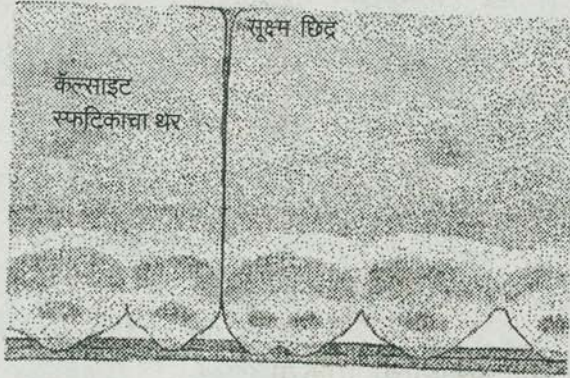 सूक्ष्म छिद्र
कॅल्साइट
स्फटिकाचा थर